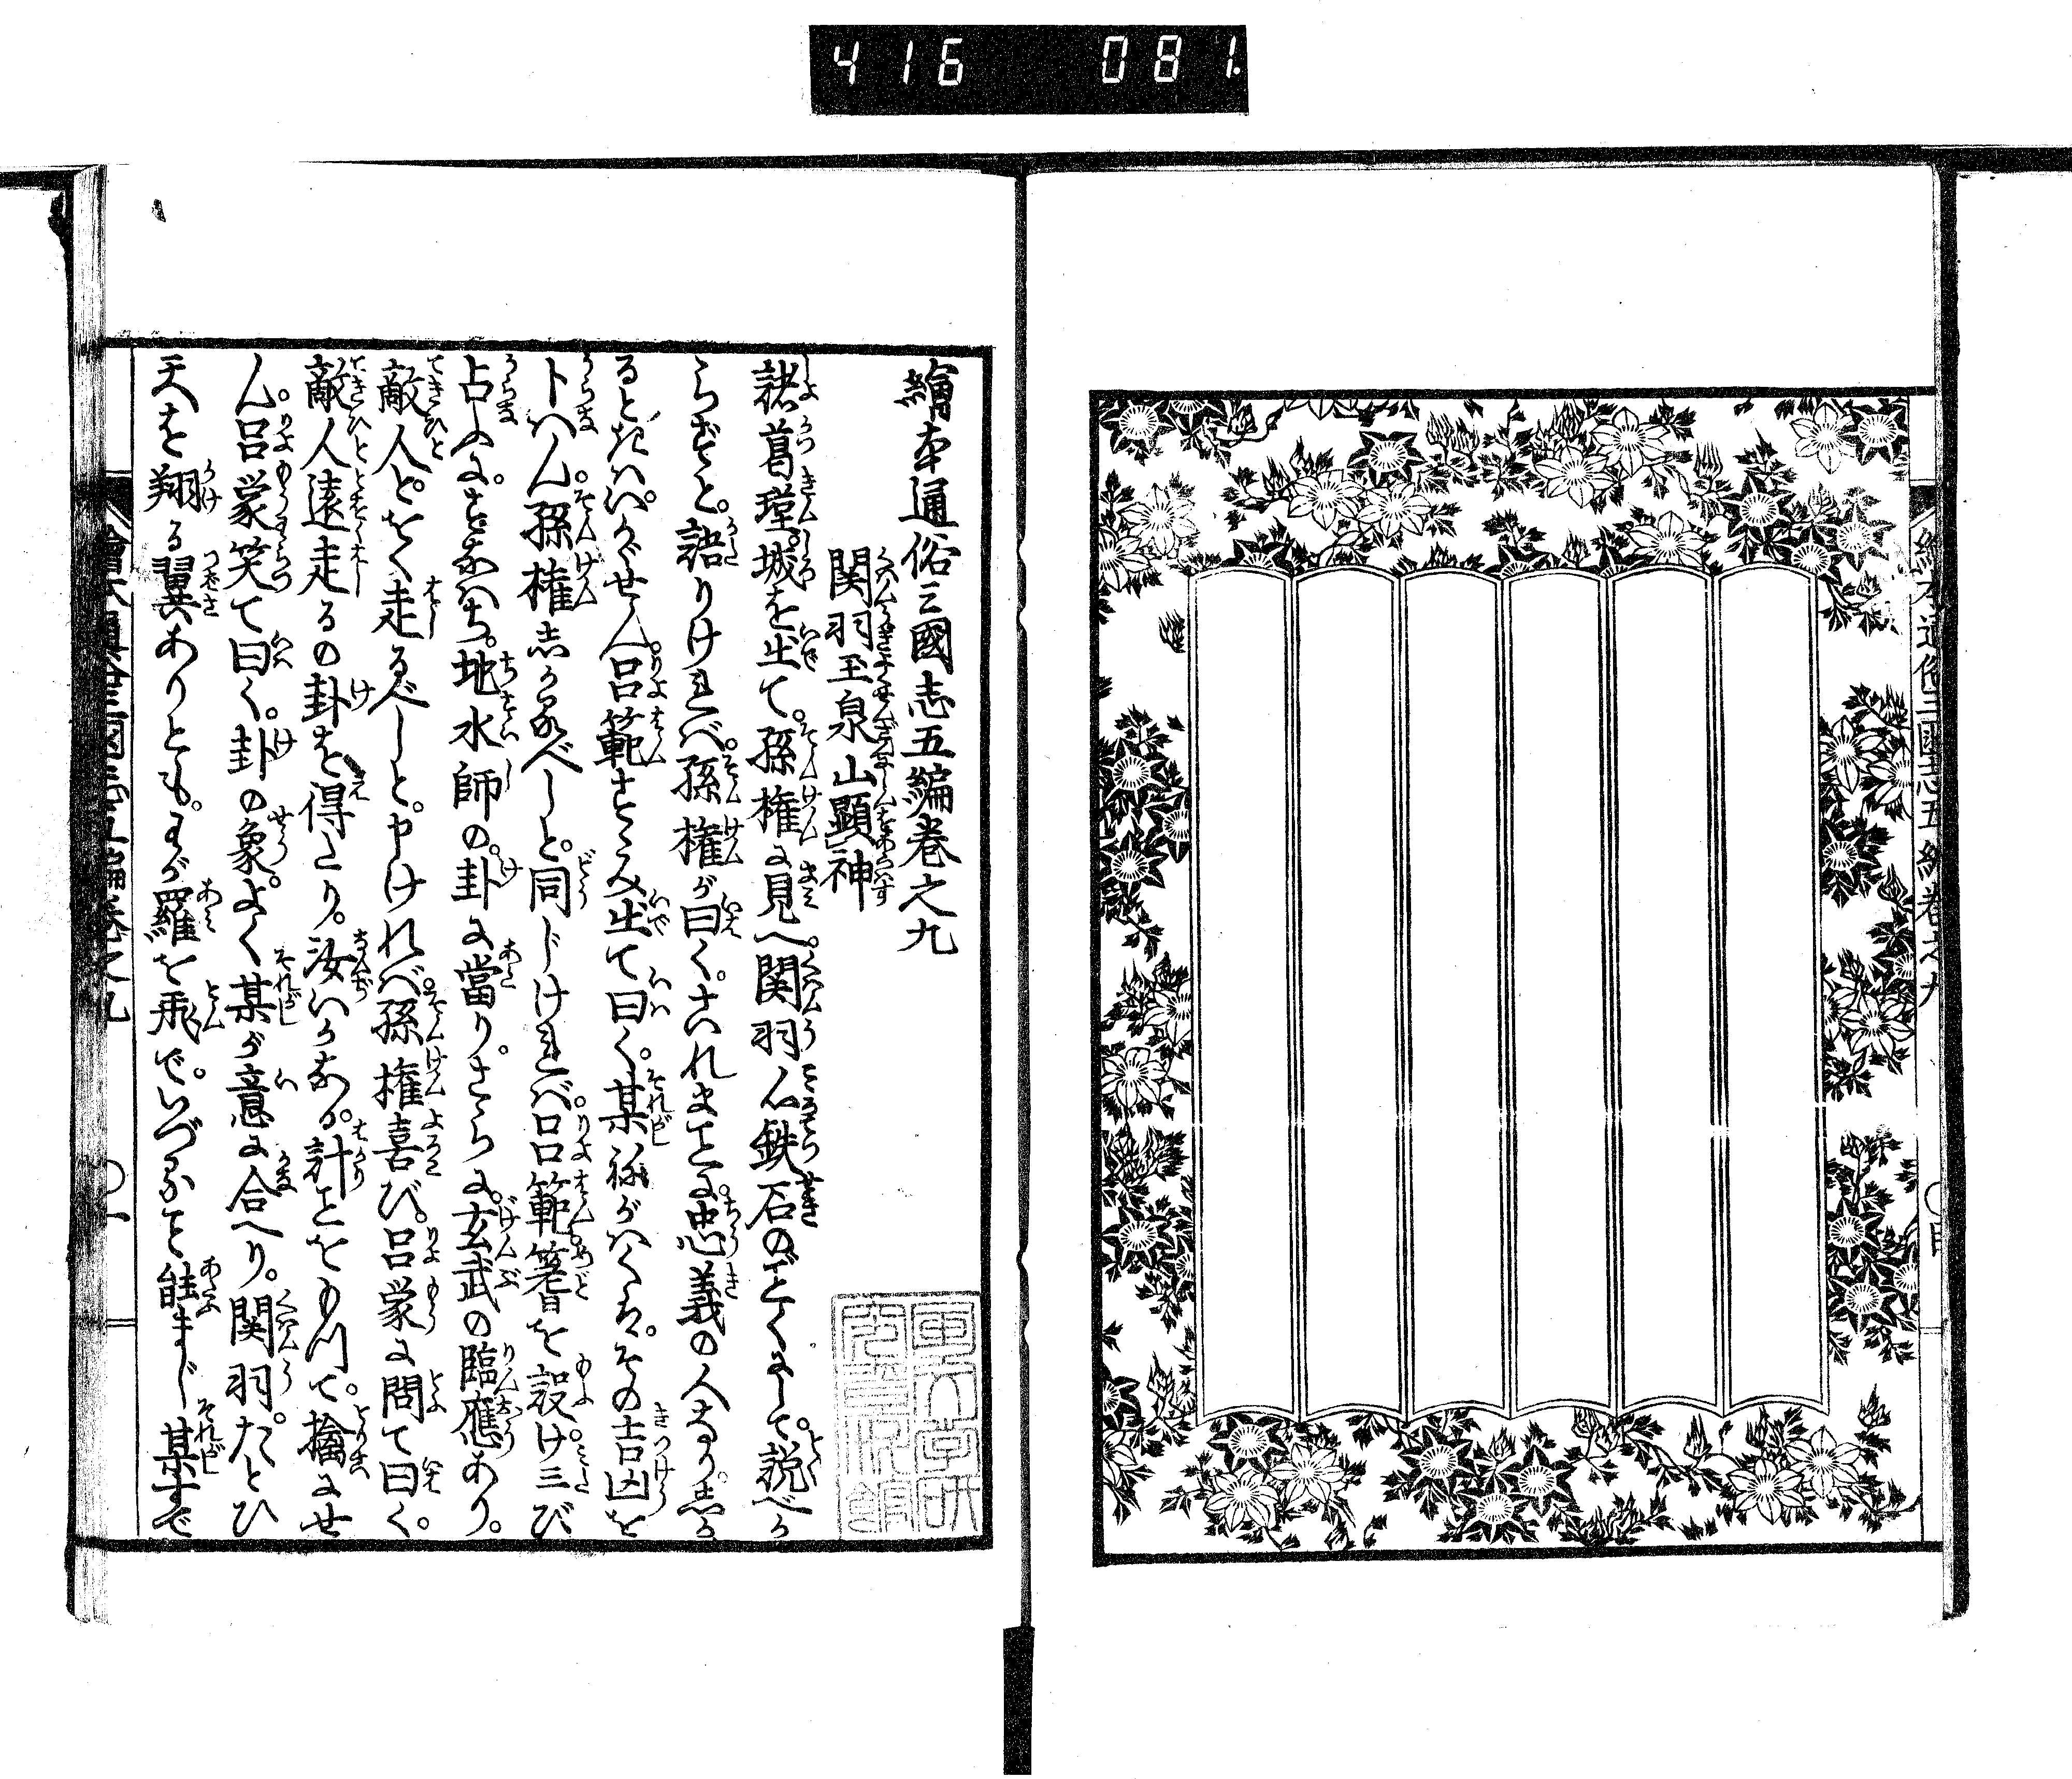 416 081
繪本通俗三國志五編巻之九
繪本通俗三國志五編巻之九
関羽玉泉山顕神
諸葛瑾。城を出て。孫権に見へ。関羽心鉄石のごとくにして。説べか
らずと。語りければ。孫権が曰く。されまことに忠義の人なり。しか
るときはいかゞせん。呂範すゝみ出て曰く。某ねがはくは。その吉凶を
卜はん。孫権しかるべしと。同じければ。呂範箸を設け。三び
占ふに。すなはち。地水師の卦に當り。さらに。玄武の臨應あり。
敵人とをく走るべしと。申ければ。孫権喜び。呂蒙に問て曰く。
敵人遠走るの卦を得たり。汝いかなる。計ことをもつて。擒にせ
ん。呂蒙笑て曰く。卦の象。よく某が意に合へり。関羽。たとひ
天を翔る翼ありとも。わが羅を飛で。いづること能まじ某すで
繪本通俗三國志五編巻之九 〇一